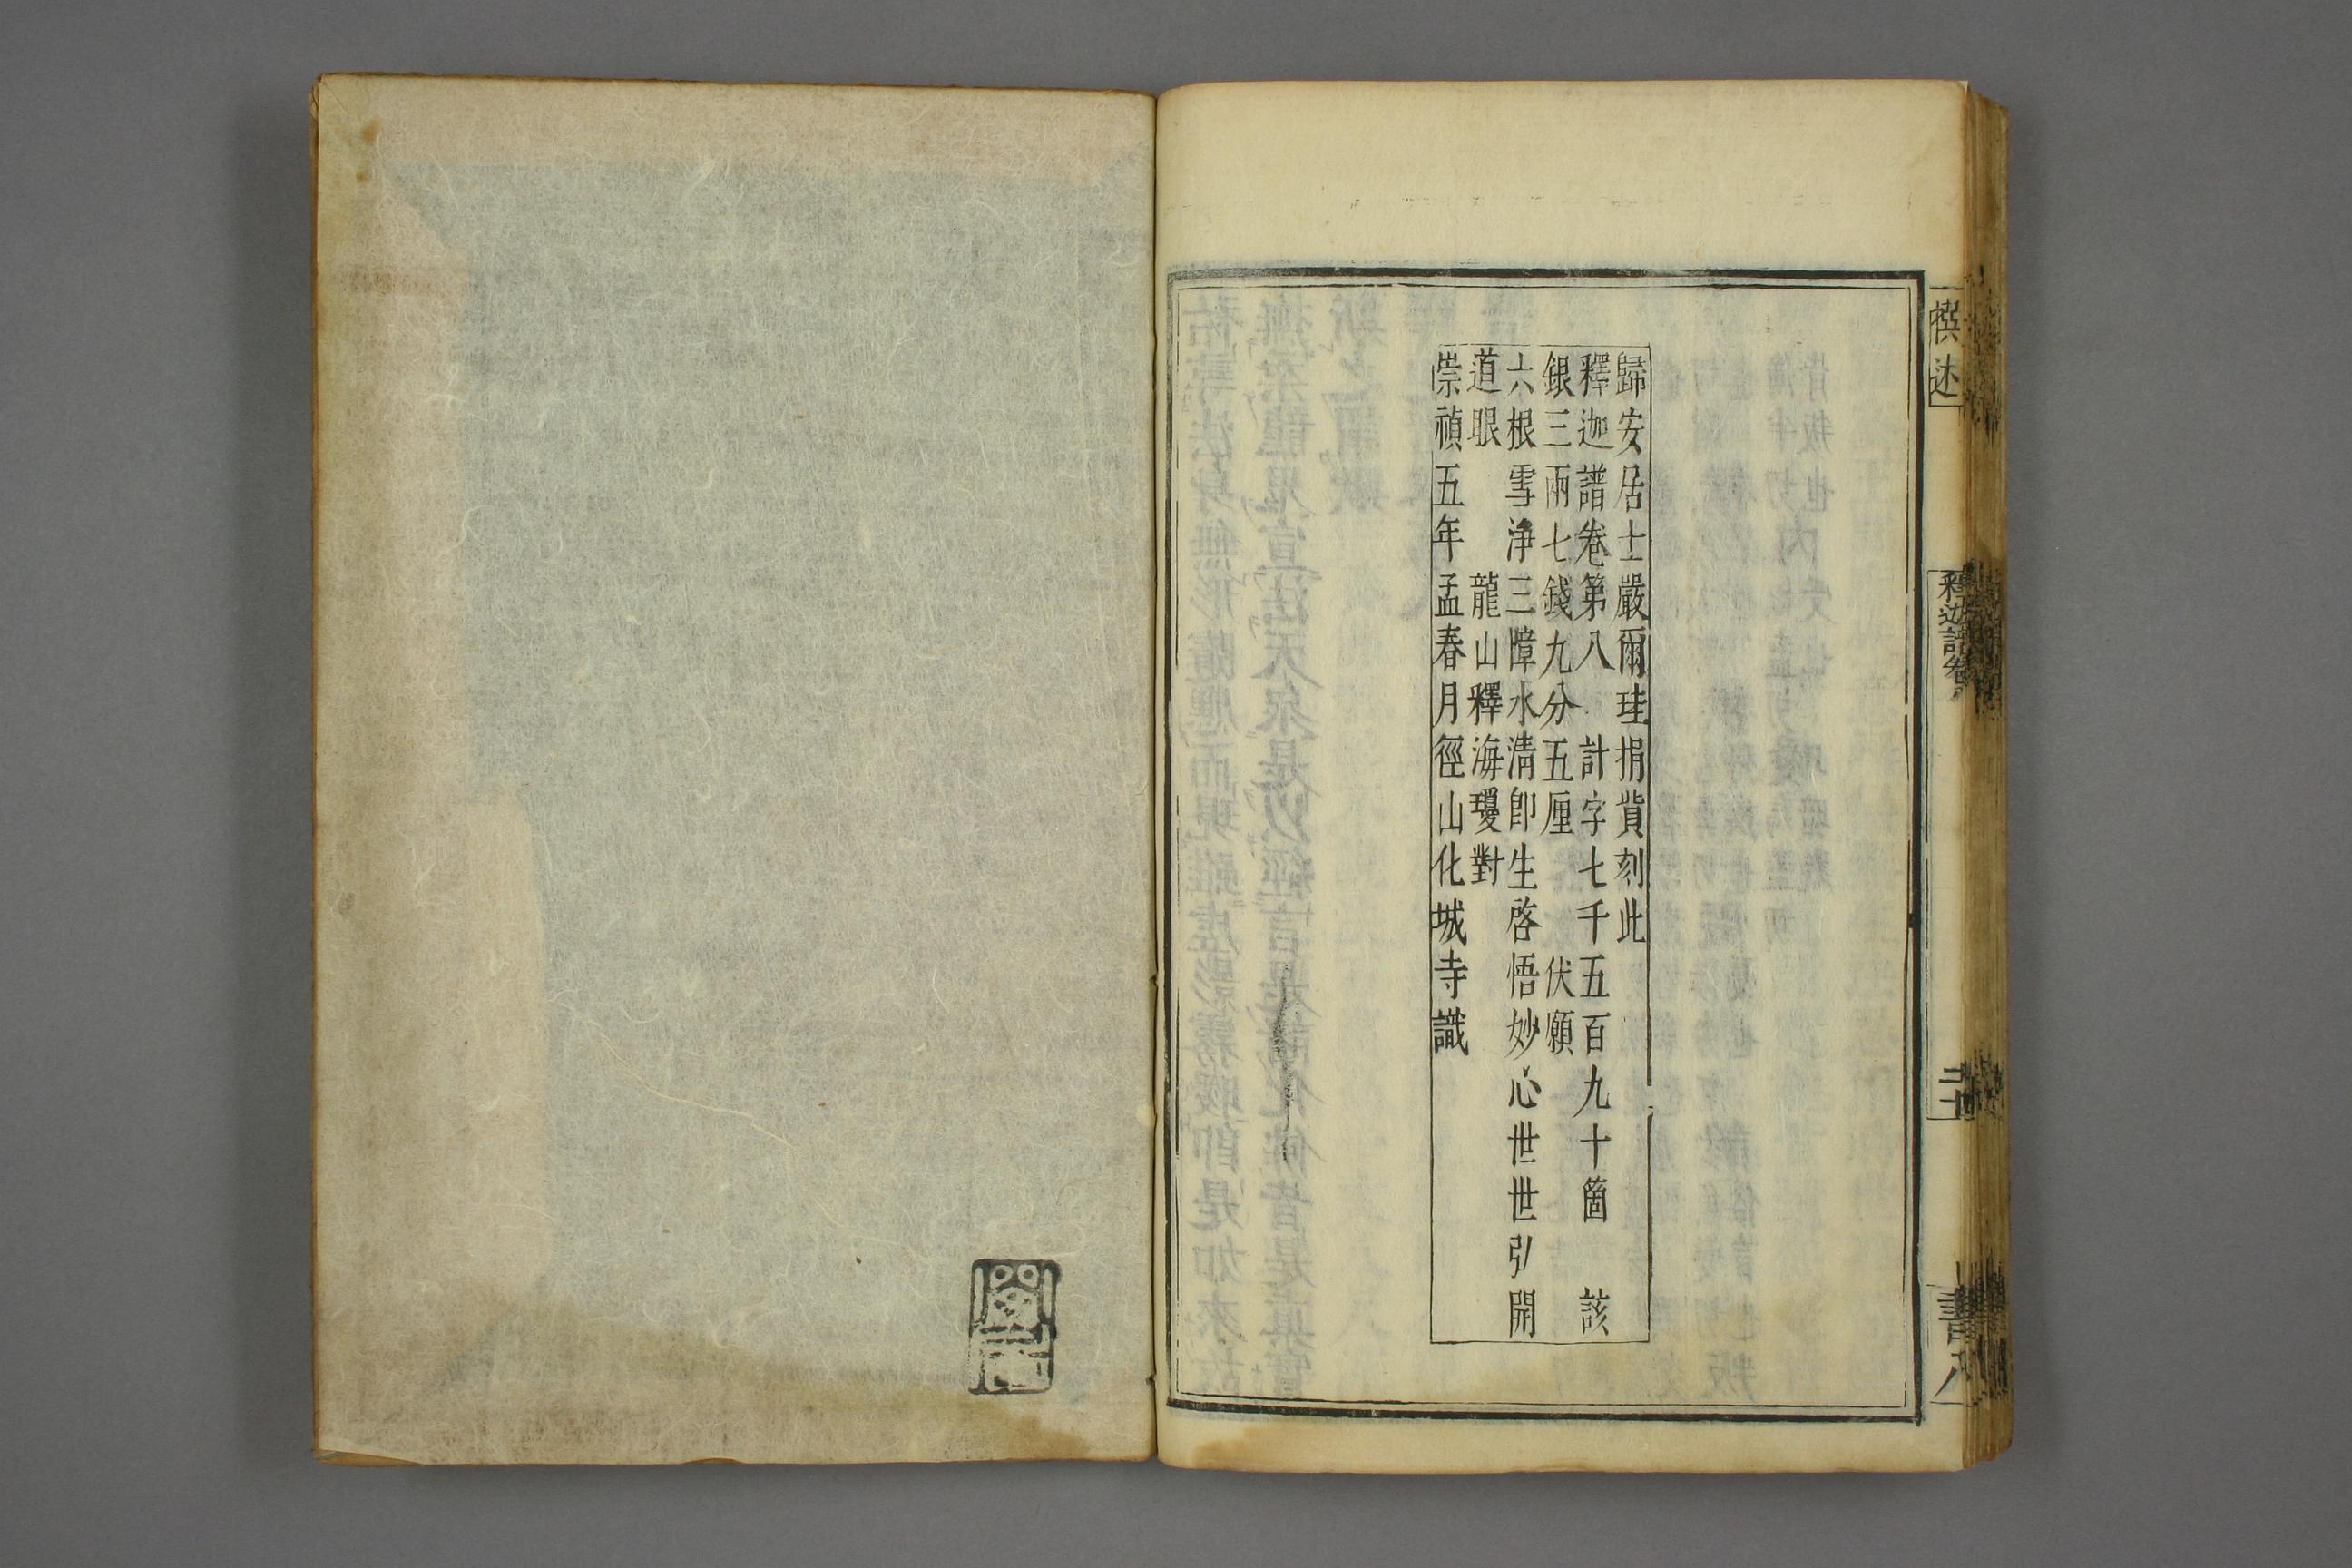 歸安居士嚴爾珪捐貲刻此
釋迦譜卷第八 計字七千五百九十箇 該
銀三兩七錢九分五厘 伏願
六根雪淨三障水清即生啓悟妙心世世引開
道眼 龍山釋海瓊對
崇禎五年孟春月徑山化城寺識
撰述
釋迦譜卷八
書八